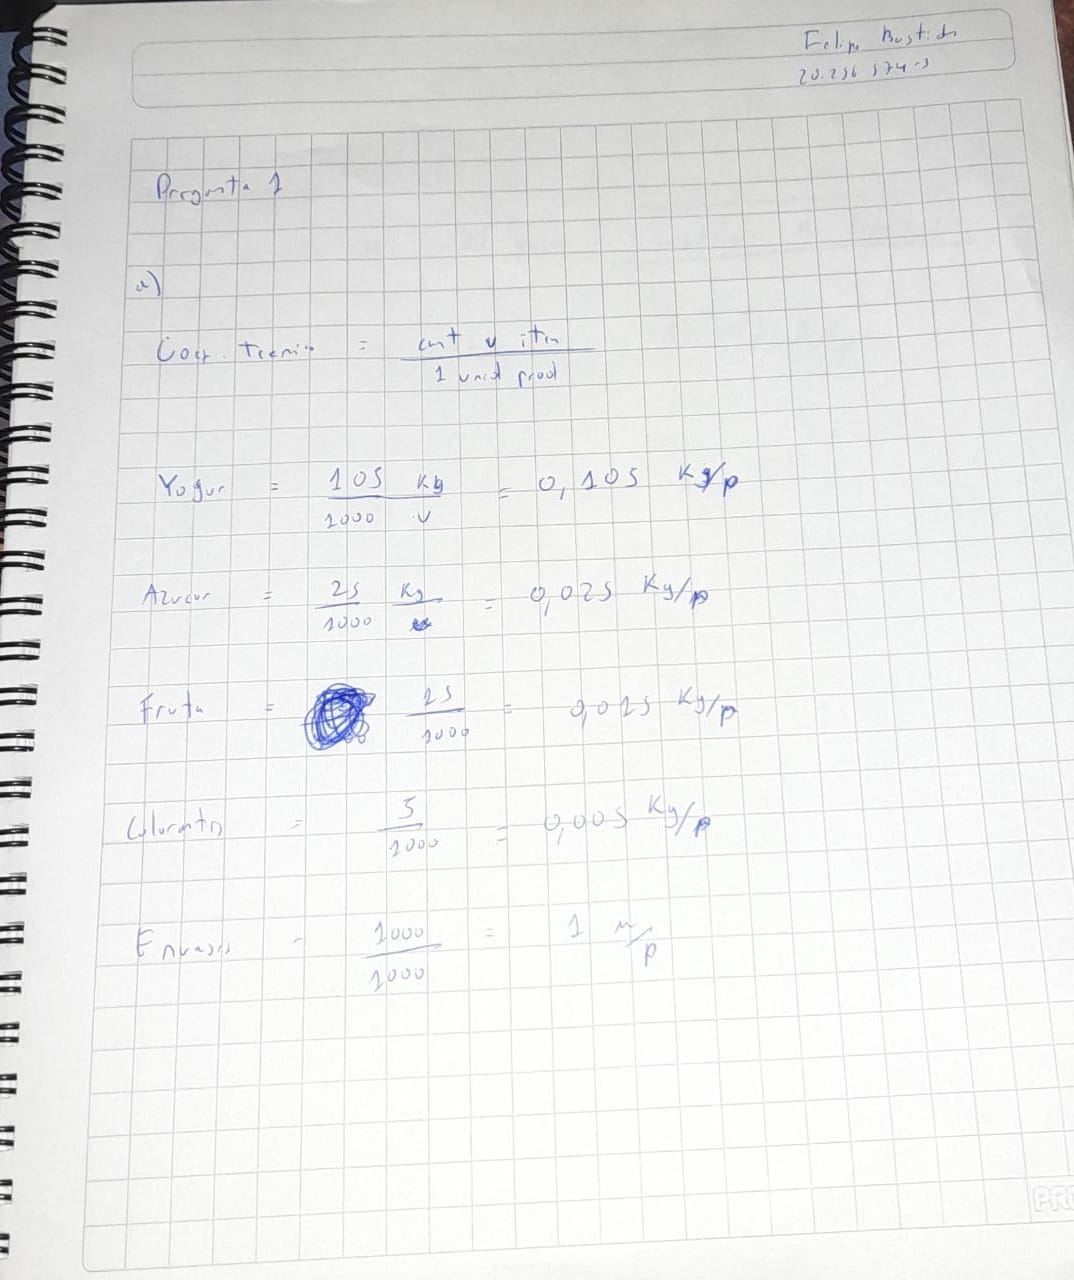 Felip Bustid
20.256 574-5
Pregunta 1
a)
Coef. Tecnic = cant y itm / 1 unid prod
Yogur = 105 Kg / 1000 u = 0,105 Kg/p
Azucar = 25 / 1000 Kg / u = 0,025 Kg/p
Fruta = 15 / 1000 = 0,015 Kg/p
Colorants = 5 / 1000 = 0,005 Kg/p
Envases = 1000 / 1000 = 1 u/p